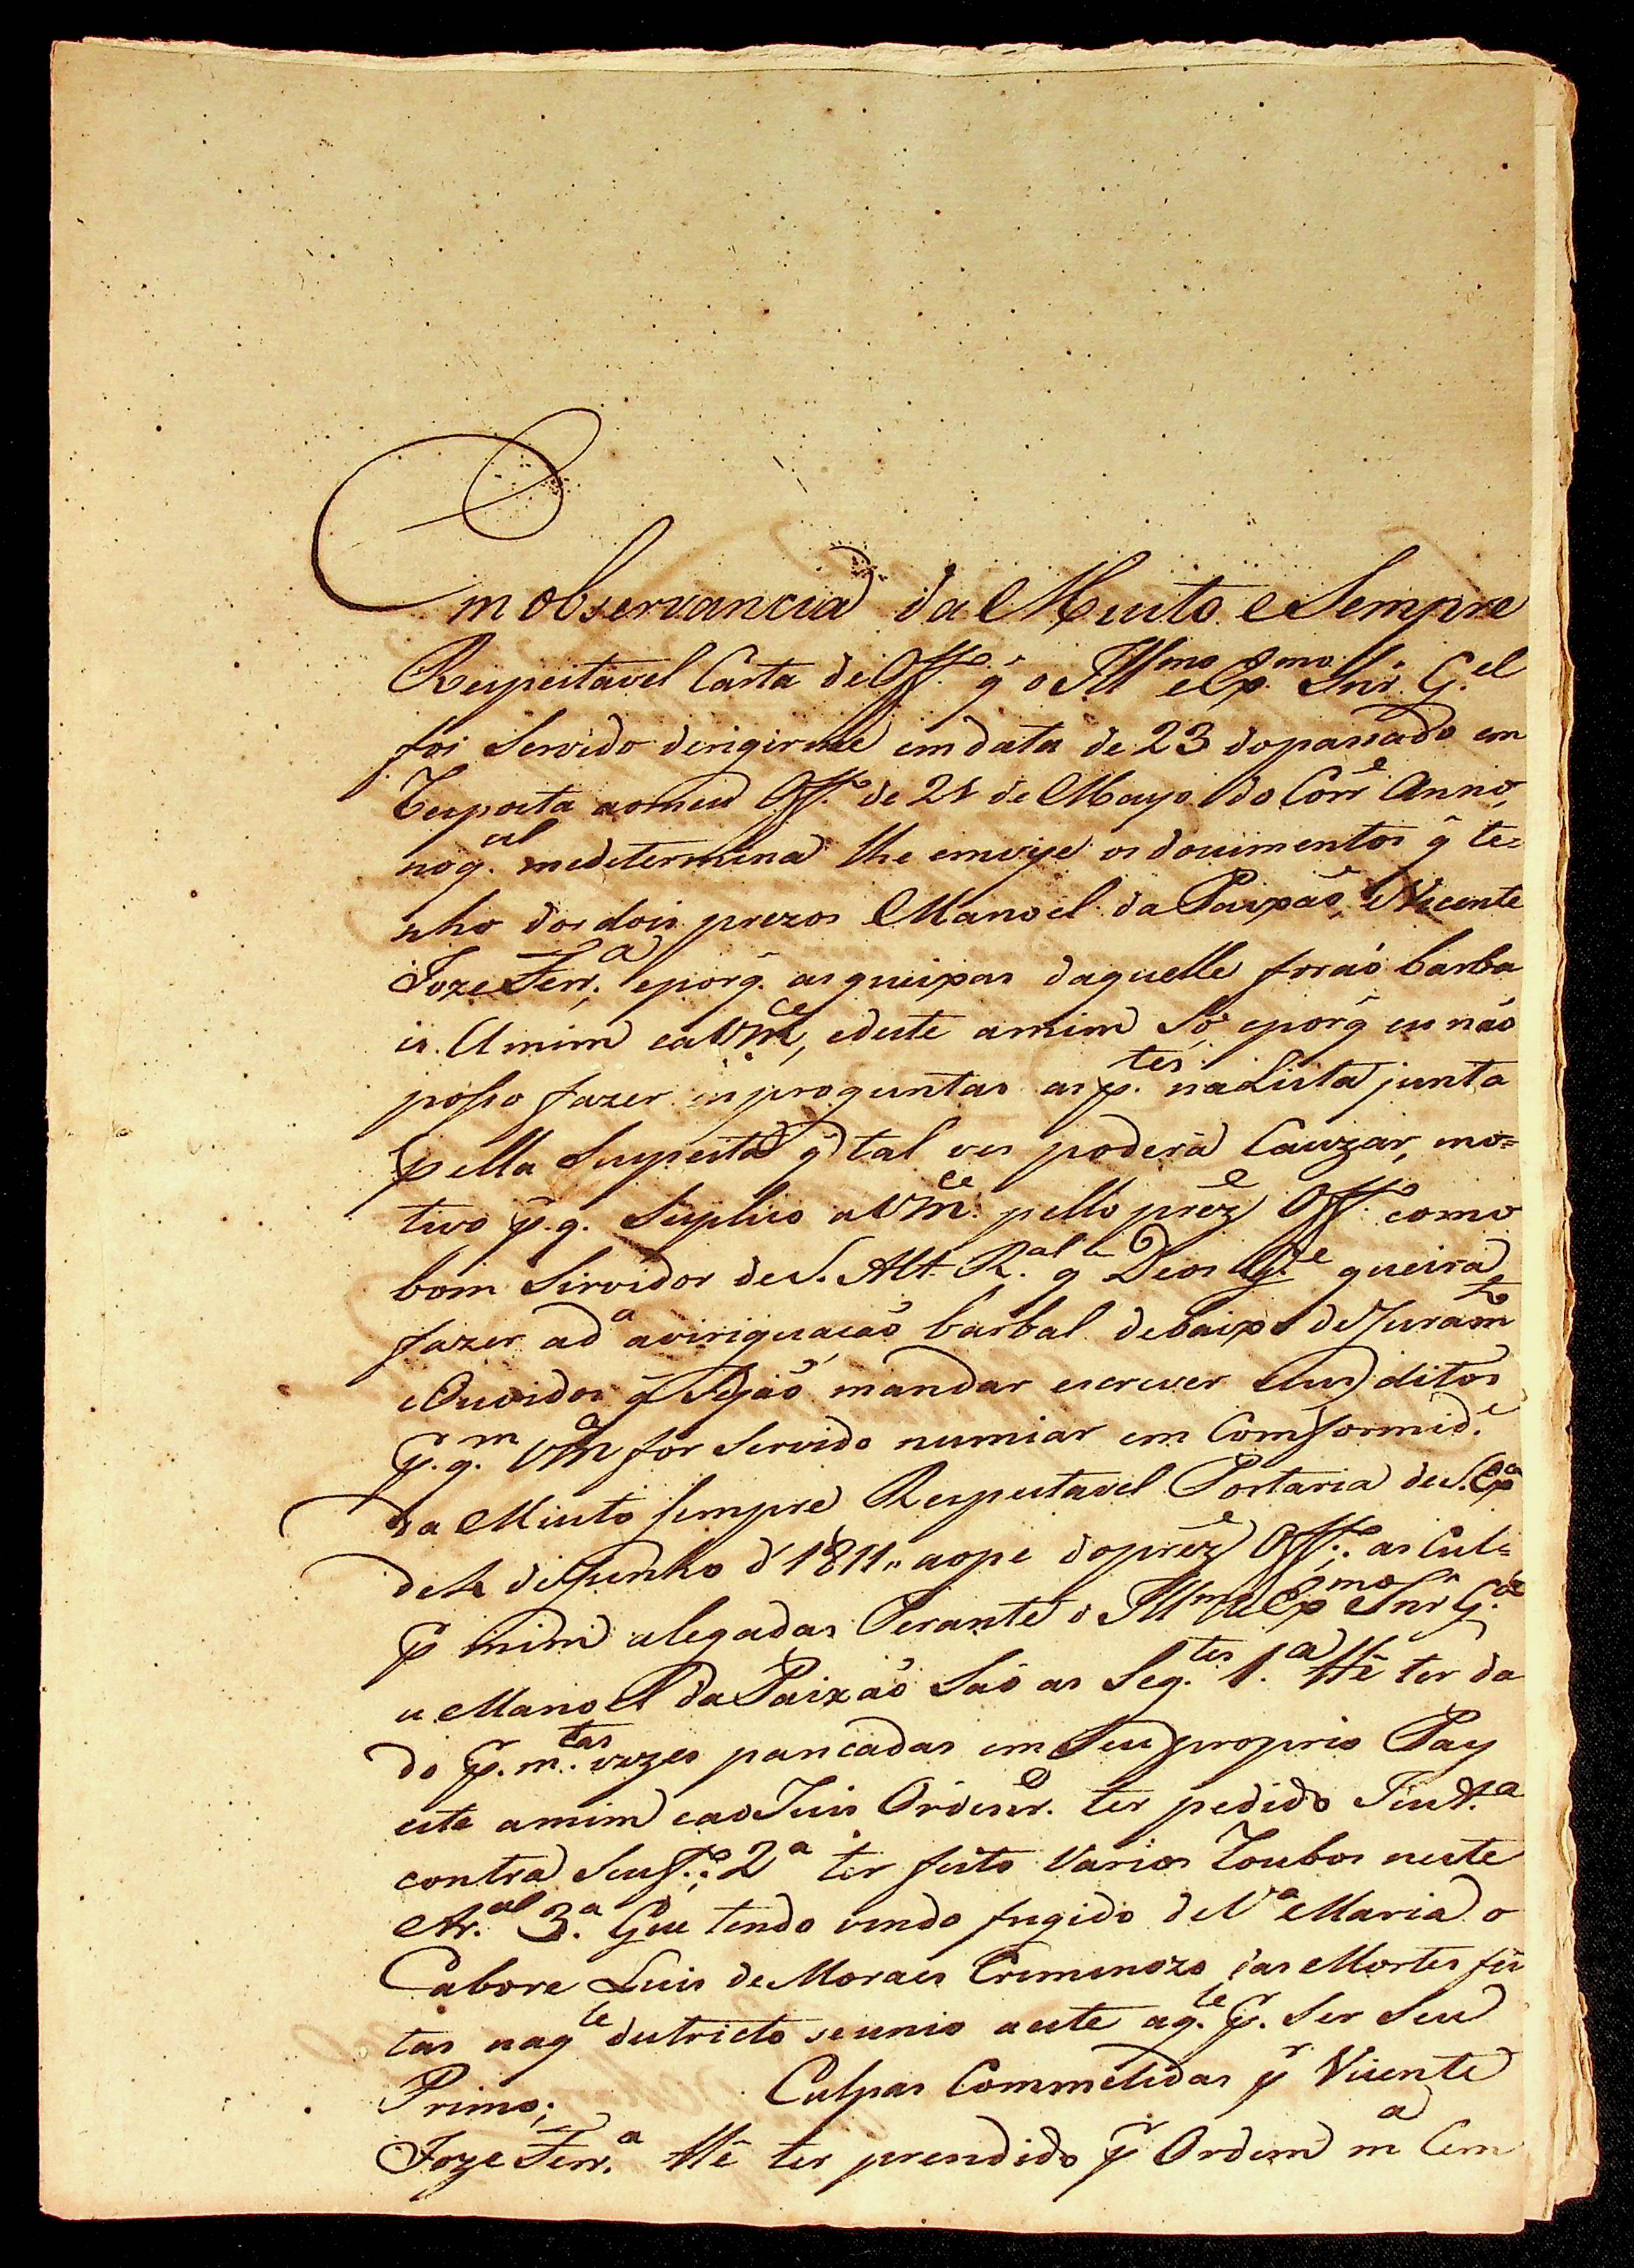 Em observancia da Muito e Sempre
Respeitavel Carta de Off.º q̃ o Ill.mo e Ex.mo Snr. G.el
foi Servido dirigirme em data de 23 do passado em
Resposta ao meu Off.º de 21 de Mayo do Corr.e Anno,
no q.al me determina lhe emvije os documentos q̃ te=
nho dos dois prezos Manoel da Paixaõ, e Vicente
Joze Ferr.a e porq̃ as queixas daquelle foraõ barba
is. A mim e a Vm.ce, e deste a mim Só, e porq̃ eu naõ
posso fazer as proguntas as p.tes na Lista junta
pella Suspeita q̃ tal ves poderá Cauzar, mo=
tivo p.r q. Suplico a Vm.ce pello prez.e Off.º como
bom Sirvidor de S. Alt. R.al q̃ Deos g.de queira
fazer a d.a aviriguacaõ barbal debaixo de Juram.to
e Ouvidos q̃ Sejaõ mandar escrever Seus ditos
p.r q.m Vm.ce for Servido numiar em Comformid.e
da Muito sempre Respeitavel Portaria de S. Ex.a
de 4 de Junho d' 1811,, ao pe do prez.e Off.º: as Cul=
p.r mim alegadas Perante o Ill.mo e Ex.mo Snr G.el
a Manoel da Paixaõ Saõ as Seg.tes 1.a Hé ter da
do p.r m.tas vezes pancadas em Seu proprio Pay
este a mim e ao Juis Ordenr.º ter pedido Just.a
contra Seu f.º; 2.a ter feito Varios Roubos neste
Ar.al 3.a Que tendo vindo fugido de V.a Maria o
Cabore Luis de Moraes Criminozo das Mortes fei
tas naq.le destricto se unio a este aq.le p.r Ser Seu
Primo; Culpas Commetidas p.r Vicente
Joze Ferr.a Hé ter prendido p.r Ordem m.a Cem